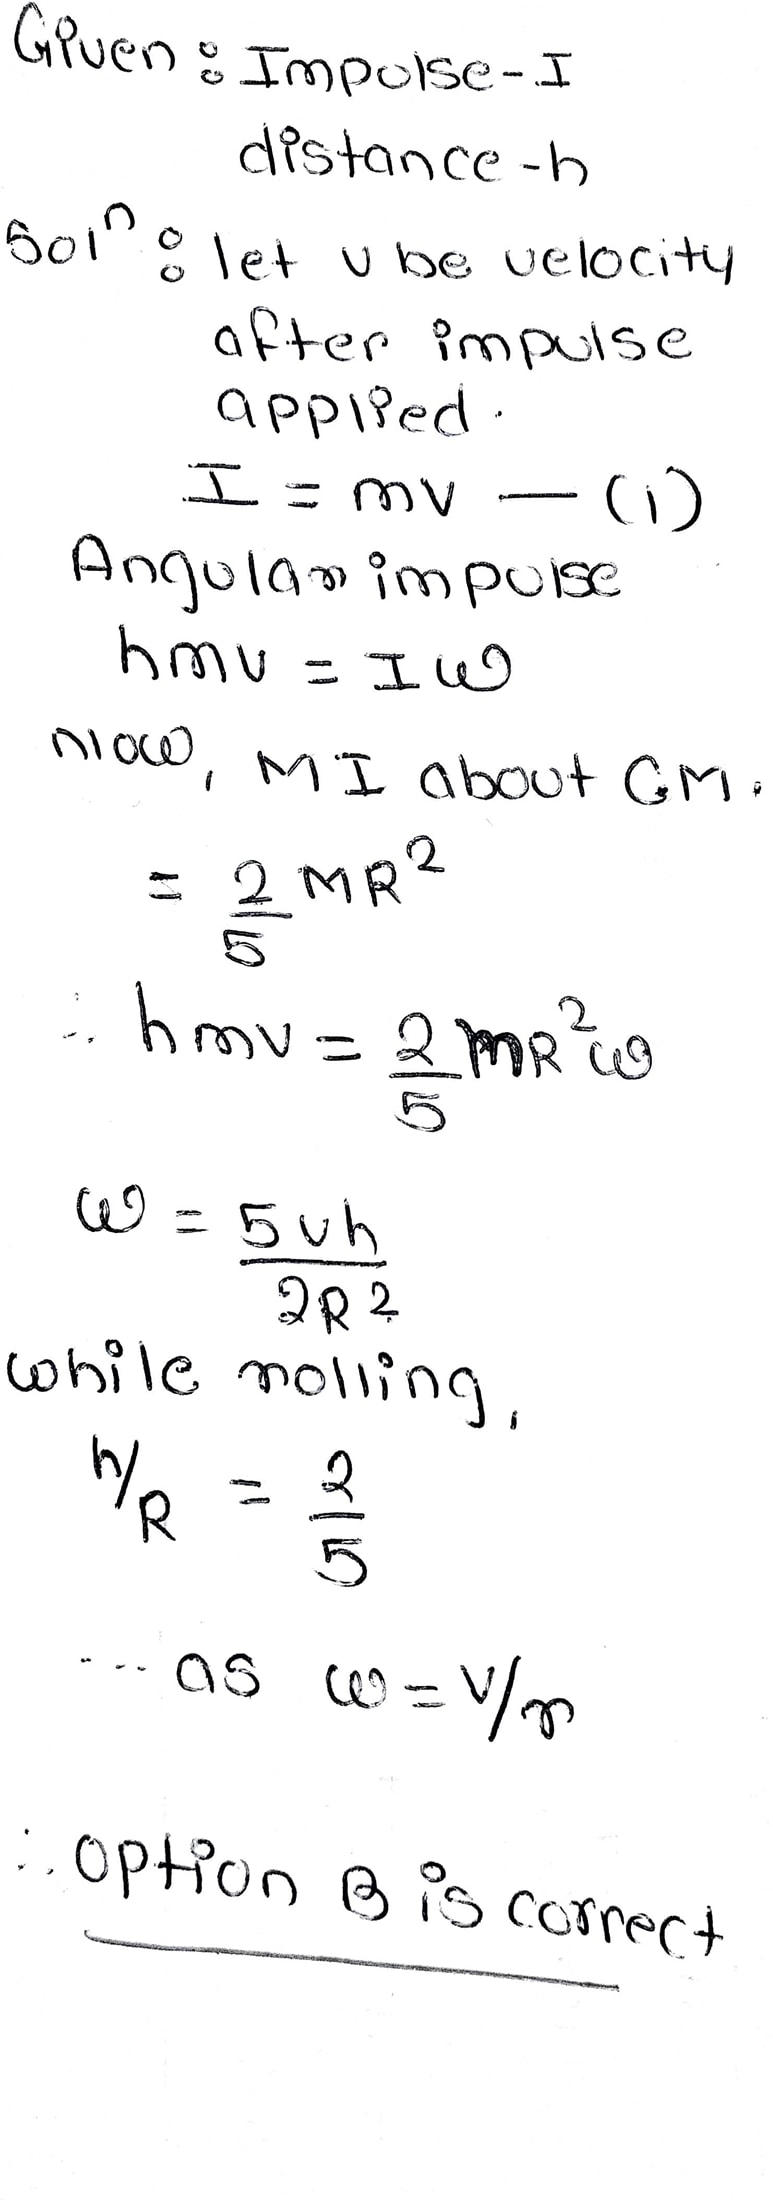 Given : Impulse - I
distance - h
Solⁿ : let v be velocity
after impulse
applied.
I = mv — (1)
Angular impulse
hmv = Iω
now, MI about CM.
= 2/5 MR²
∴ hmv = 2/5 mR²ω
ω = 5vh/2R²
while rolling,
h/R = 2/5
... as ω = v/r
∴ Option B is correct